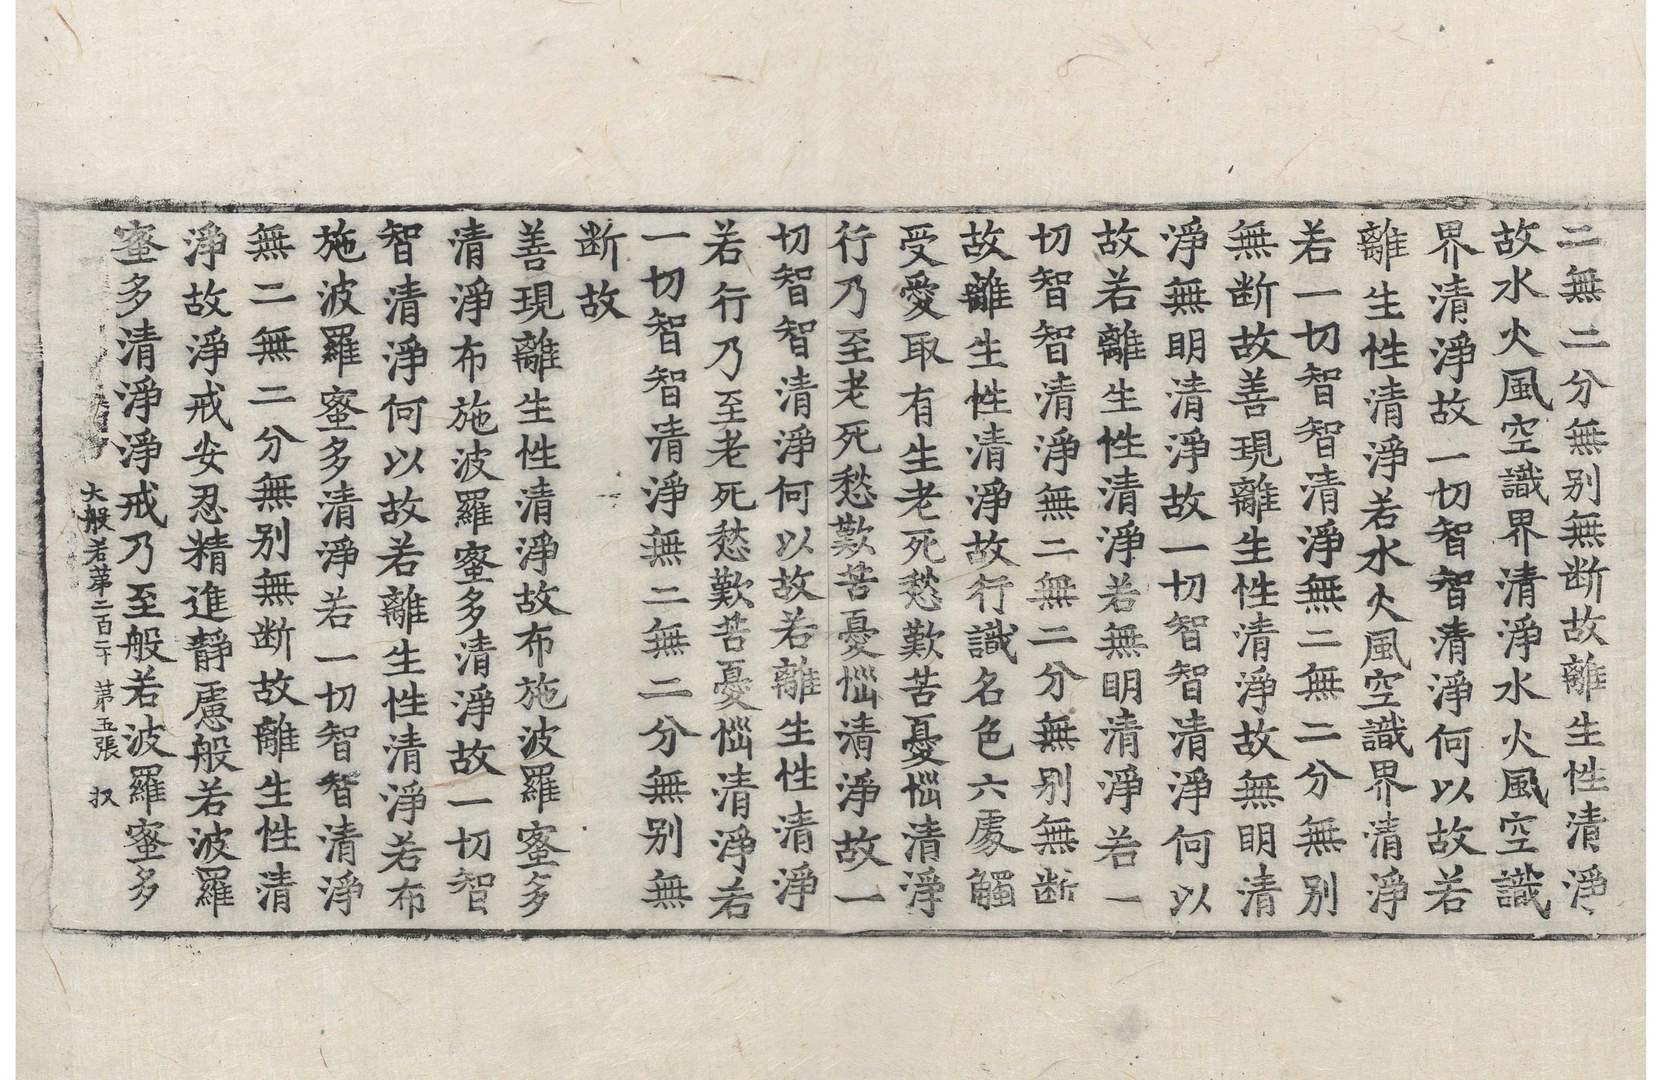 二無二分無别無断故離生性清淨
故水火風空識界清淨水火風空識
界清淨故一切智智清淨何以故若
離生性清淨若水火風空識界清淨
若一切智智清淨無二無二分無别
無断故善現離生性清淨故無眀清
淨無眀清淨故一切智智清淨何以
故若離生性清淨若無眀清淨若一
切智智清淨無二無二分無别無断
故離生性清淨故行識名色六處觸
受愛取有生老死愁歎苦憂惱清淨
行乃至老死愁歎苦憂惱清淨故一
切智智清淨何以故若離生性清淨
若行乃至老死愁歎苦憂惱清淨若
一切智智清淨無二無二分無别無
断故
善現離生性清淨故布施波羅蜜多
清淨布施波羅蜜多清淨故一切智
智清淨何以故若離生性清淨若布
施波羅蜜多清淨若一切智智清淨
無二無二分無别無断故離生性清
淨故淨戒安忍精進靜慮般若波羅
蜜多清淨淨戒乃至般若波羅蜜多
大般若第二百二十 第五張